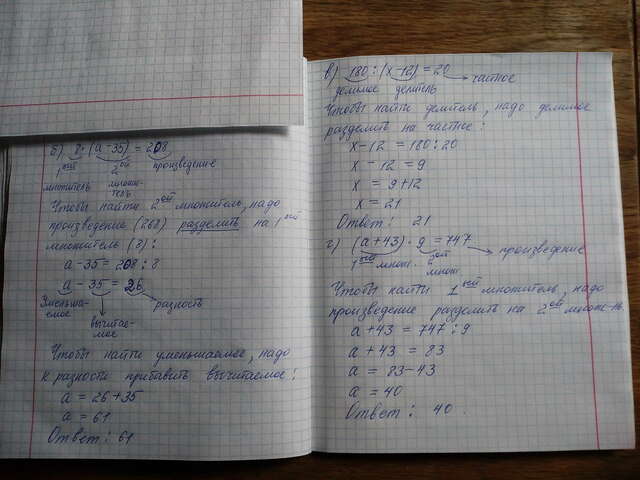 б) 8·(а-35)=208
1ый 2ой произведение
множитель множи-
тель
Чтобы найти 2ой множитель, надо
произведение (268) разделить на 1ый
множитель (8):
а-35=208:8
а-35=26
Уменьша-
емое разность
вычитае-
мое
Чтобы найти уменьшаемое, надо
к разности прибавить вычитаемое:
а=26+35
а=61
Ответ: 61
в) 180:(х-12)=20
частное
делимое делитель
Чтобы найти делитель, надо делимое
разделить на частное:
х-12=180:20
х-12=9
х=9+12
х=21
Ответ: 21
г) (а+43)·9=747
произведение
1ый множ. 2ой
множ.
Чтобы найти 1ый множитель, надо
произведение разделить на 2ой множ-ль.
а+43=747:9
а+43=83
а=83-43
а=40
Ответ: 40.